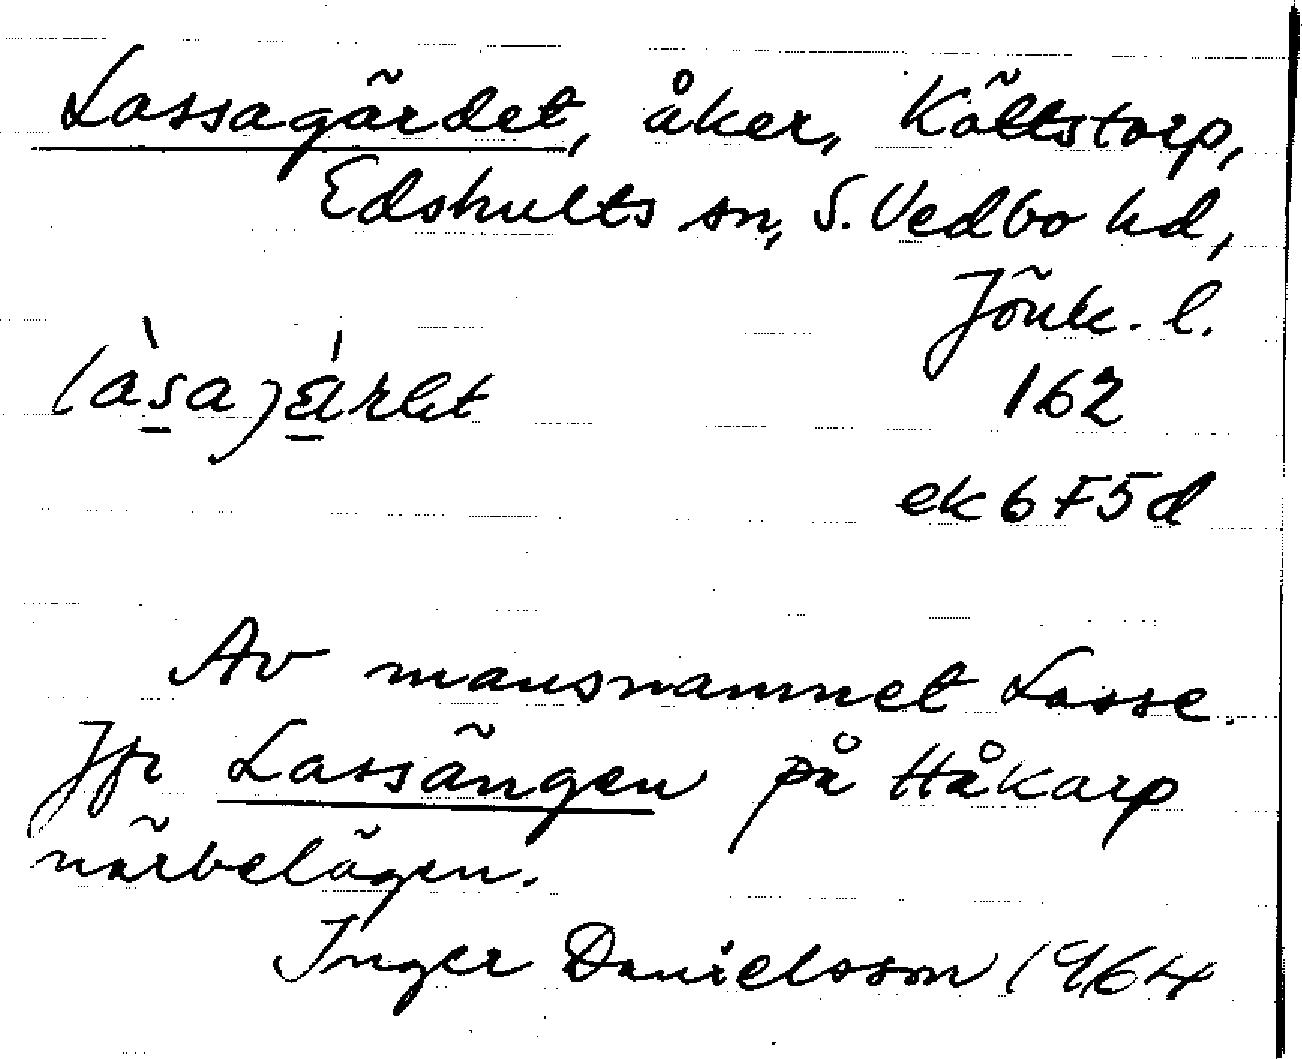 Lassagärdet, åker, Källtstorp,
Edshults sn, S. Vedbo hd,
Jönk. l.
162
ek 6 F5d
Av mansnamnet Lasse.
Jfr Lassängen på Håkarp
närbelägen.
Inger Danielsson 1964